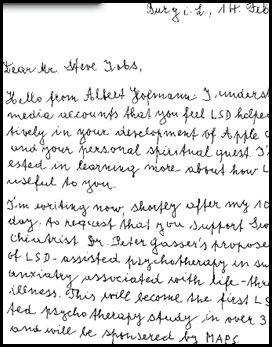 Burg i.L., 14. Feb
Dear Mr. Steve Jobs,
Hello from Albert Hofmann. I underst
media accounts that you feel LSD helpe
tively in your development of Apple
and your personal spiritual quest. I'
ested in learning more about how L
useful to you.
I'm writing now, shortly after my 10
day, to request that you support Sw
chiatrist Dr. Peter Gasser's propose
of LSD-assisted psychotherapy in su
anxiety associated with life-thr
illness. This will become the first LS
ted psychotherapy study in over 3
and will be sponsered by MAPS